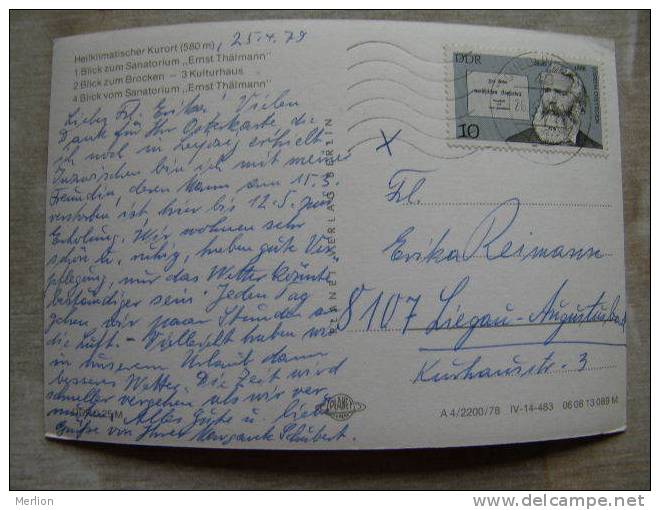 Heilklimatischer Kurort (580 m), 25.4.79
1 Blick zum Sanatorium „Ernst Thälmann"
2 Blick zum Brocken — 3 Kulturhaus
4 Blick vom Sanatorium „Ernst Thälmann"
Liebes Frl. Erika! Vielen
Dank für Ihr Osterkarte die
ich noch in Leipzig erhielt.
Inzwischen bin ich mit meiner
Freundin, deren Mann am 15.3.
verstorben ist hier bis 12.5. zur
Erholung. Wir wohnen sehr
schön u. ruhig, haben gute Ver-
pflegung, nur das Wetter könnte
beständiger sein. Jeden Tag
gehen wir paar Stunden an
die Luft. - Vielleicht haben wir
in unserem Urlaub dann
besseres Wetter. Die Zeit wird
schneller vergehen als wir ver-
Alles Gute u. liebe
Grüße von Ihrer Margarete Schubert.
PLANET-VERLAG BERLIN
PLANET
DDR
10
Frl.
Erika Reimann
8107 Liegau-Augustusbad
Kurhausstr. 3
A 4/2200/78 IV-14-483 06 06 13 089 M
Merlion
www.delcampe.net